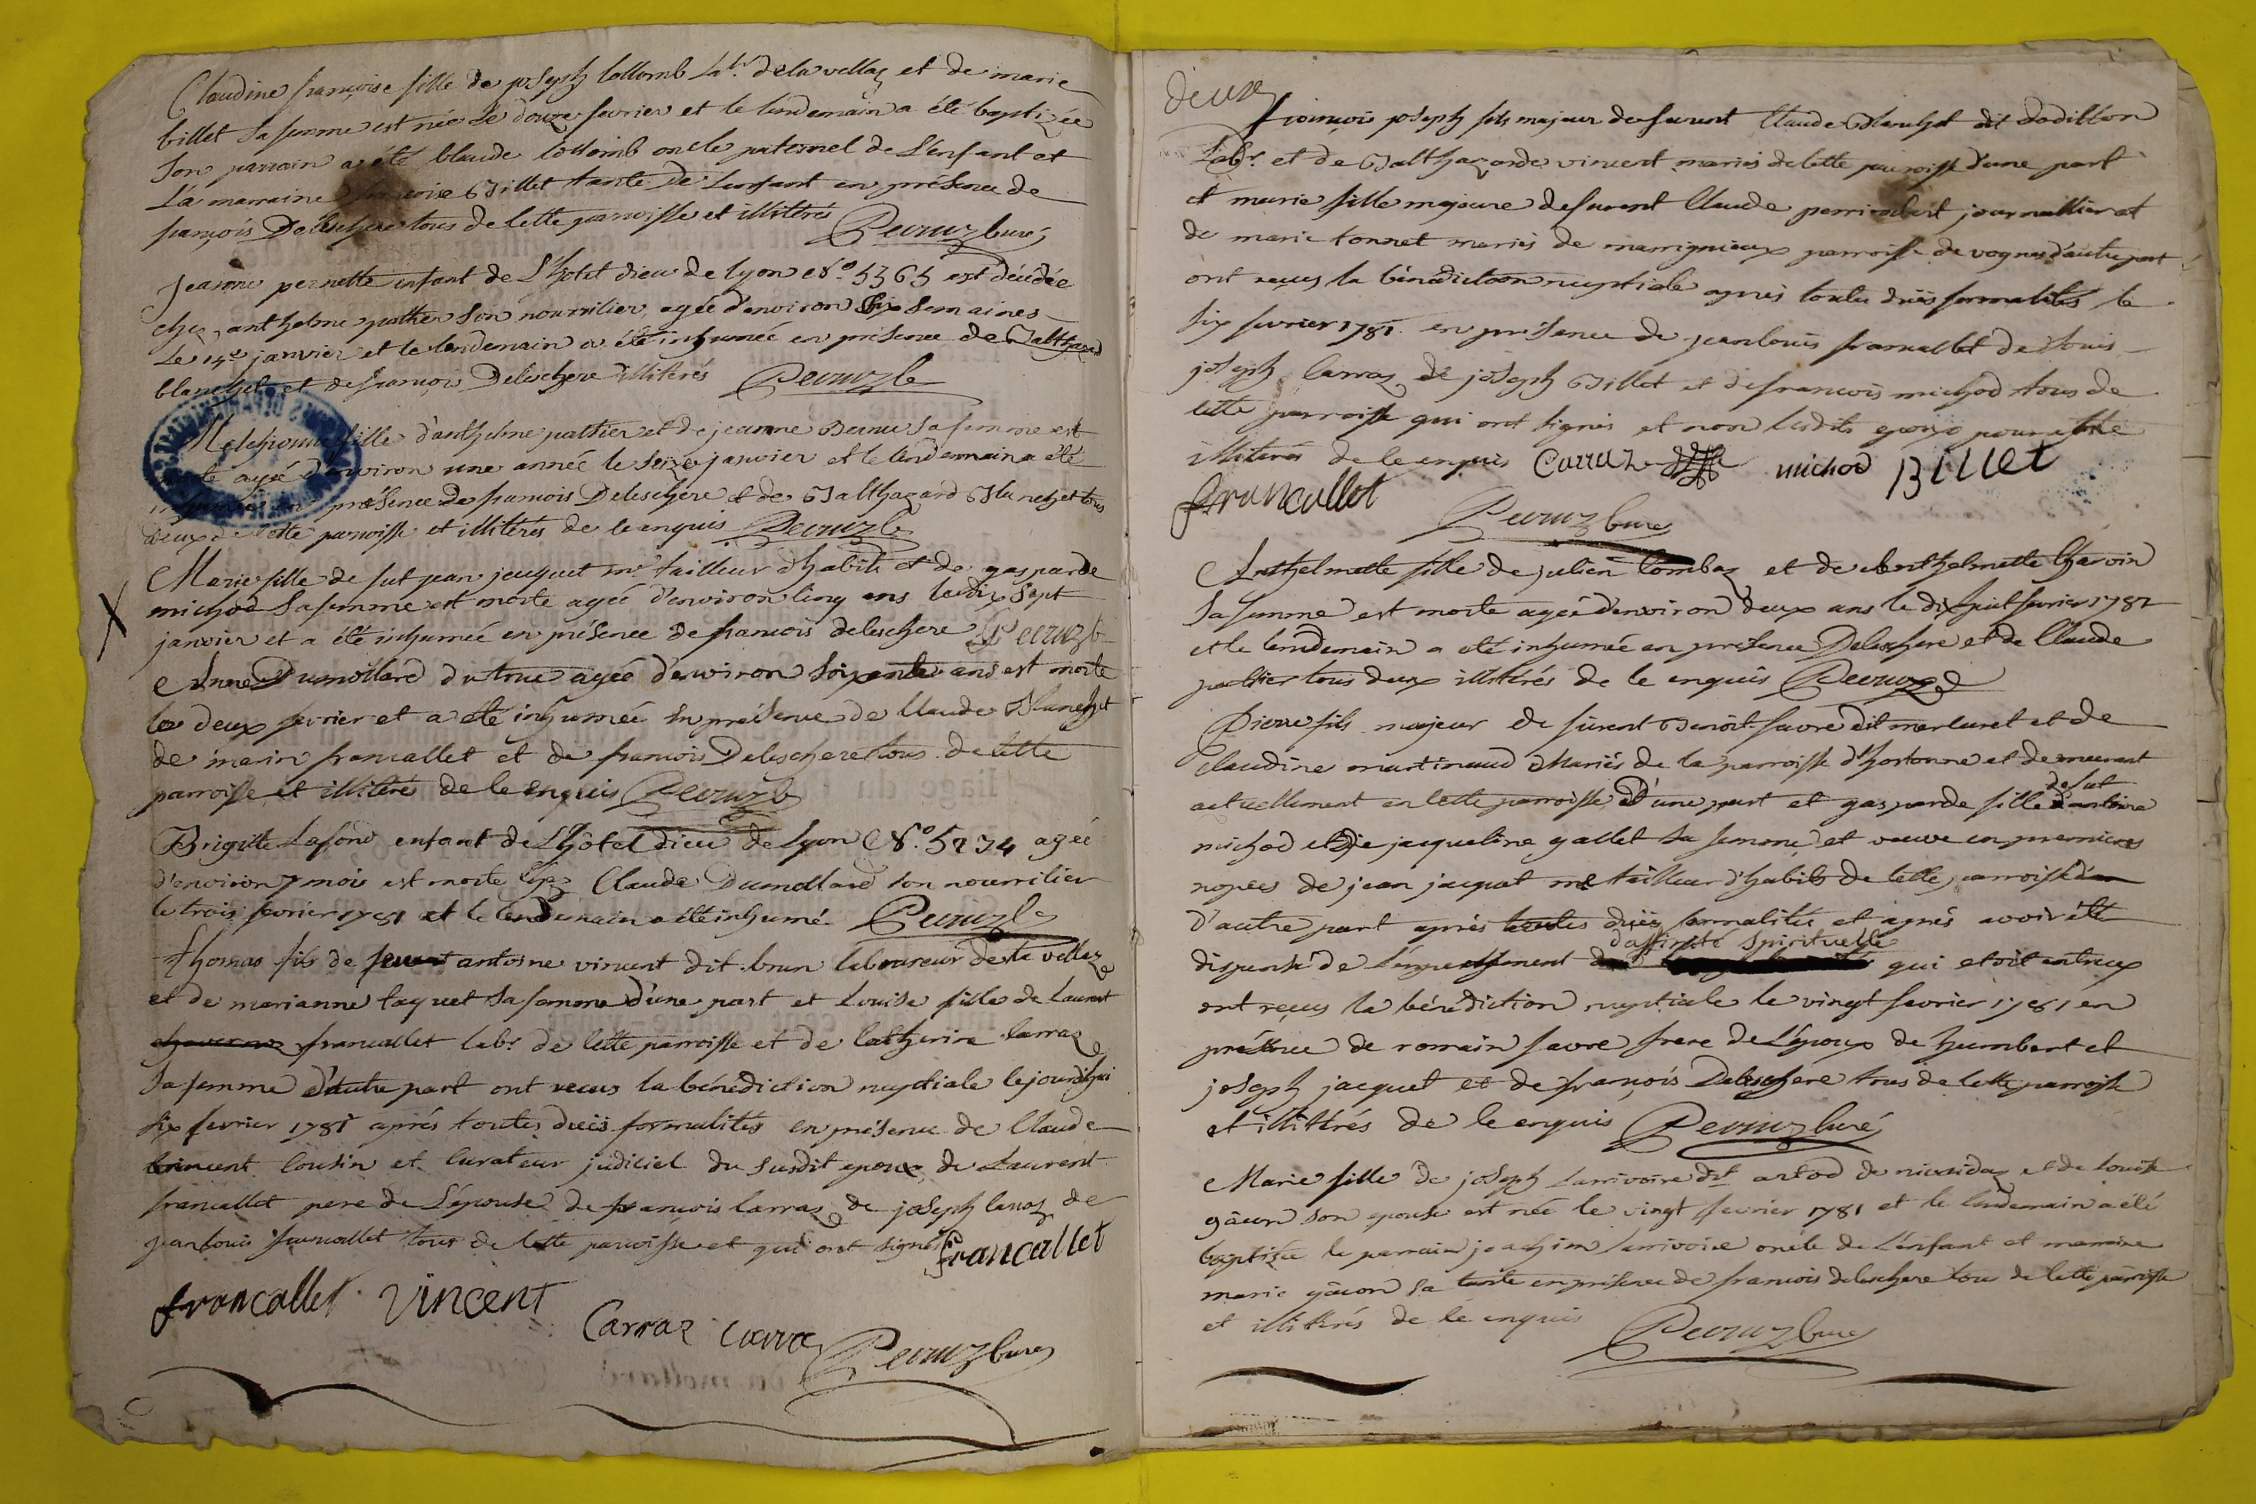 Claudine françoise fille de joseph Collomb Labr. de la vellaz et de marie
billet sa femme est née le douze fevrier et le lendemain a été baptizée
son parrain a été Claude Collomb oncle paternel de L'enfant et
La marraine françoise Billet tante de Lenfant en présence de
françois Delechere tous de Cette parroisse et illitérés Peruuz Curé
Jeanne pernette enfant de L'hotel dieu de lyon N.º 5365 est décédée
chez anthelme pattier son nourrisier, agée d'environ six semaines
Le 14e janvier et le lendemain a été inhumée en présence de Balthazard
blanchet et de françois Delechere illitérés Peruuz C
fille d'anthelme pattier et de jeanne Berne sa femme est
morte agée d'environ une année le seize janvier et le lendemain a été
inhumée en présence de francois Deleschere et de Balthazard Blanchet tous
deux de Cette parroisse et illitérés de ce enquis Peruuz C
Marie fille de fut jean jacquet me tailleur d'habits et de gasparde
michod sa femme est morte agée d'environ Cinq ans le dix sept
janvier et a été inhumée en présence de francois deleschere Peruuz C
Anne Dumollard du truc agée d'environ soixante ans est morte
le deux fevrier et a été inhumée en présence de Claude Blanchet
de marin francallet et de francois Deleschere tous de Cette
parroisse et illitérés de ce enquis Peruuz C
Brigitte Lafond enfant de L'hôtel dieu de Lyon N.º 5234 agée
d'environ 7 mois est morte chez Claude Dumollard son nourrisier
le trois fevrier 1781 et le lendemain a été inhumé Peruuz C
Thomas fils de feu antoine vincent dit brun laboureur de la vellaz
et de marianne taquet sa femme d'une part et Louise fille de Laurent
francallet labr. de Cette parroisse et de Catherine Carraz
sa femme d'autre part ont recus la bénédiction nuptiale le jourdhui
six fevrier 1781 aprés toutes duës formalités en présence de Claude
vincent Cousin et Curateur judiciel du susdit epoux, de Laurent
francallet pere de L'épouse de françois Carraz de joseph Carraz de
jean Louis francallet tous de Cette parroisse et qui ont signés francallet
francallet vincent Carraz Carra Peruuz Curé
deux
françois joseph fils majeur de furent Claude Blanchet dit Dodillon
Labr. et de Balthazarde vincent mariés de Cette parroisse d'une part
et marie fille majeure de furent Claude perrimbert journallier et
de marie tonnet mariés de marrignieux parroisse de vognes d'autre part
ont recus la bénédiction nuptiale après toutes duës formalités le
six fevrier 1781 en présence de jean louis francallet de Louis
joseph Carraz de joseph Billet et de francois michod tous de
Cette parroisse qui ont signés et non lesdits epoux pour etre
illitérés de ce enquis Carraz michod Billet
francallet Peruuz Curé
Anthelmette fille de julien Combaz et de Anthelmette Charvin
sa femme est morte agée d'environ deux ans le dix huit fevrier 1781
et le lendemain a été inhumée en présence Deleschere et de Claude
pattier tous deux illitérés de ce enquis Peruuz C
Pierre fils majeur de furent Benoit favre dit marluret et de
Claudine martinaud Mariés de la parroisse d'hostonne et demeurant
actuellement en Cette parroisse d'une part et gasparde fille de fut antoine
michod et de jacqueline gallet sa femme et veuve en premieres
nopces de jean jacquet me tailleur d'habits de Cette parroisse
d'autre part après toutes duës formalités et après avoir été
dispensé de L'empechement d'affinité spirituelle qui etoit entreux
ont reçus la bénédiction nuptiale le vingt fevrier 1781 en
présence de romain favre frere de L'époux de humbert et
joseph jacquet et de françois Deleschere tous de Cette parroisse
et illitérés de ce enquis Peruuz Curé
Marie fille de joseph Larrivoire dt artod de nivoidaz et de Louise
gâcon son epouse est née le vingt fevrier 1781 et le lendemain a été
baptizée le parrain joachim Larrivoire oncle de L'enfant et marraine
marie gâcon sa tante en présence de francois deleschere tous de Cette parroisse
et illitérés de ce enquis Peruuz Curé